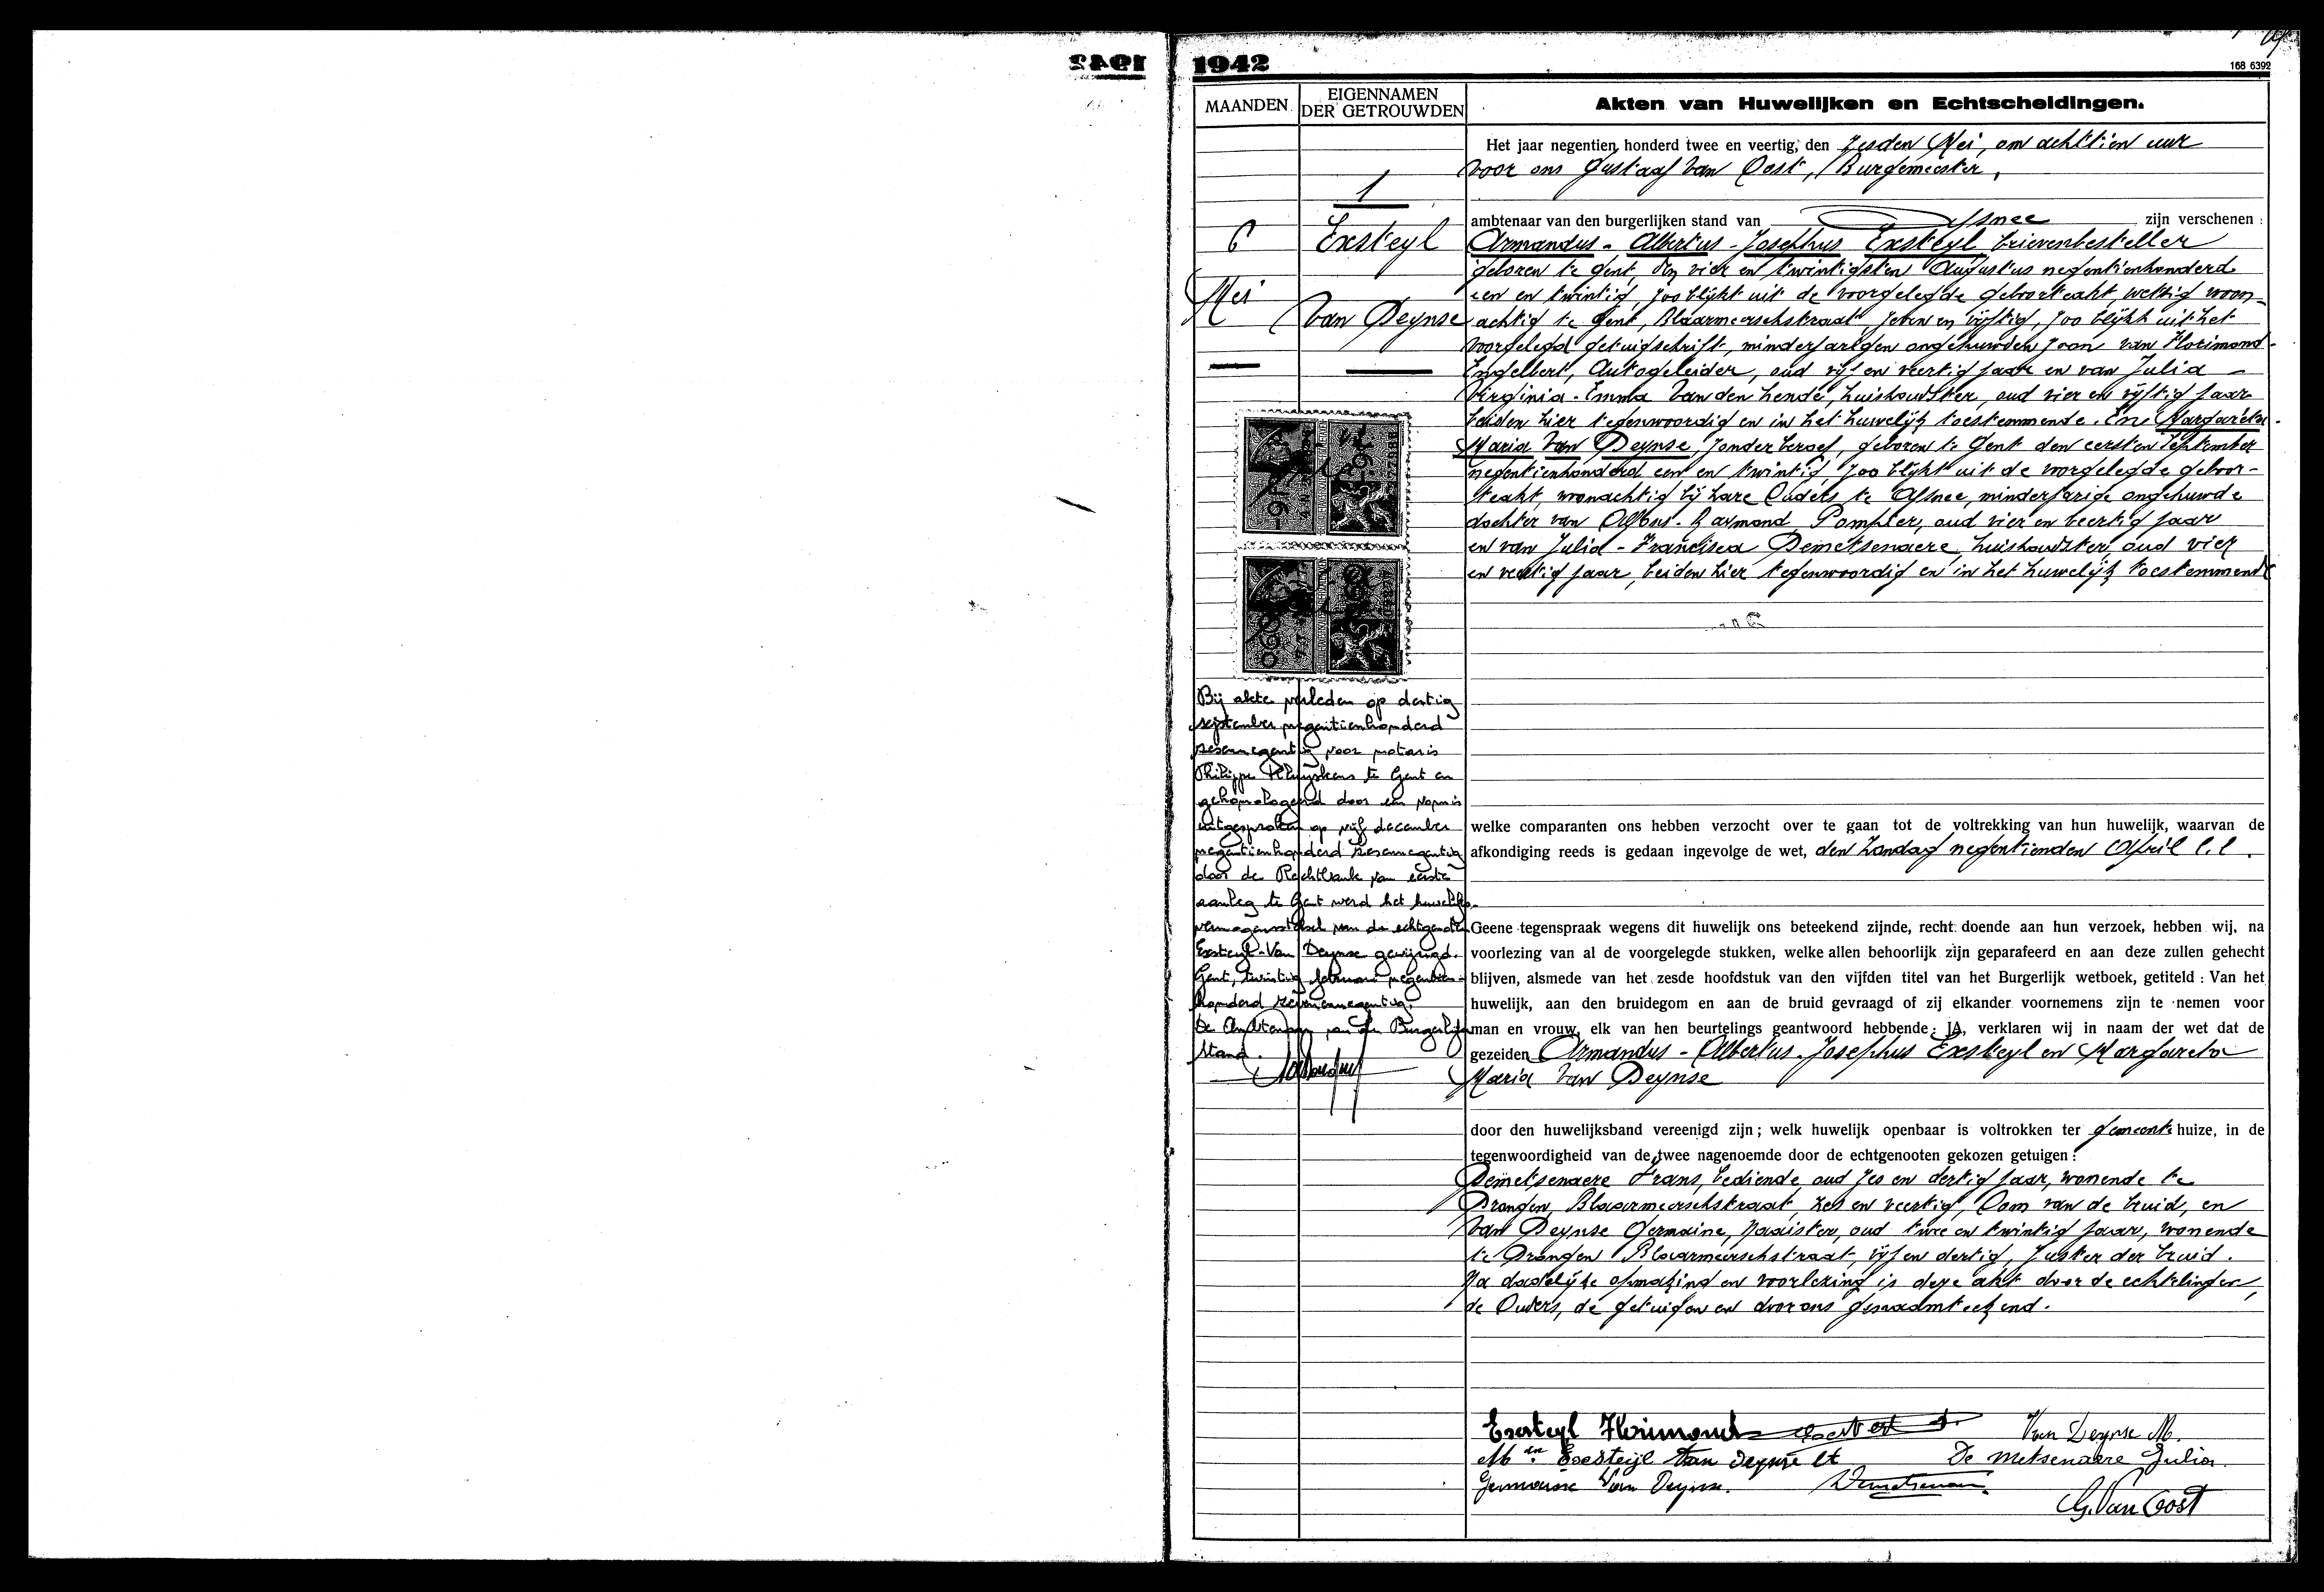 1942
168 6392
MAANDEN
EIGENNAMEN
DER GETROUWDEN
Akten van Huwelijken en Echtscheidingen.
Het jaar negentien honderd twee en veertig, den Zesden Mei, om achttien uur
voor ons Gustaaf Van Oost, Burgemeester,
1
ambtenaar van den burgerlijken stand van Afsnee zijn verschenen :
6
Mei
Exsteyl
Van Deynse
Armandus - Albertus - Josephus Exsteyl brievenbesteller
geboren te Gent, den vier en twintigsten Augustus negentienhonderd
een en twintig, zoo blijkt uit de voorgelegde geboorteakt, wettig woon-
achtig te Gent, Blaarmeerschstraat zeven en vijftig, zoo blijkt uit het
voorgelegd getuigschrift, minderjarigen ongehuwden zoon van Florimond
Engelbert, Autogeleider, oud vijf en veertig jaar en van Julia -
Virginia - Emma Van den Hende, huishoudster, oud vier en vijftig jaar
beiden hier tegenwoordig en in het huwelijk toestemmende. En: Margareta
Maria Van Deynse, zonder beroep, geboren te Gent den eersten September
negentienhonderd een en twintig, zoo blijkt uit de voorgelegde geboor-
teakt, woonachtig bij hare Ouders te Afsnee, minderjarige ongehuwde
dochter van Alfons - Raymond, Pompier, oud vier en veertig jaar
en van Julia - Francisca Demetsenaere, huishoudster, oud vier
en veertig jaar, beiden hier tegenwoordig en in het huwelijk toestemmende
Bij akte verleden op dertig
september negentienhonderd
zesennegentig voor notaris
Philippe te Gent en
gehomologeerd door een vonnis
uitgesproken op vijf december
negentienhonderd zesennegentig
door de Rechtbank van eerste
aanleg te Gent werd het huwelijks-
vermogensstelsel van de echtgenoten
Exsteyl-Van Deynse gewijzigd.
Gent, twintig februari negentien-
honderd zevenennegentig.
De Ambtenaar van den Burgerlijken
Stand.
welke comparanten ons hebben verzocht over te gaan tot de voltrekking van hun huwelijk, waarvan de
afkondiging reeds is gedaan ingevolge de wet, den Zondag negentienden April l.l.
Geene tegenspraak wegens dit huwelijk ons beteekend zijnde, recht doende aan hun verzoek, hebben wij, na
voorlezing van al de voorgelegde stukken, welke allen behoorlijk zijn geparafeerd en aan deze zullen gehecht
blijven, alsmede van het zesde hoofdstuk van den vijfden titel van het Burgerlijk wetboek, getiteld : Van het
huwelijk, aan den bruidegom en aan de bruid gevraagd of zij elkander voornemens zijn te nemen voor
man en vrouw, elk van hen beurtelings geantwoord hebbende : JA, verklaren wij in naam der wet dat de
gezeiden Armandus - Albertus - Josephus Exsteyl en Margareta
Maria Van Deynse
door den huwelijksband vereenigd zijn ; welk huwelijk openbaar is voltrokken ter gemeentehuize, in de
tegenwoordigheid van de twee nagenoemde door de echtgenooten gekozen getuigen :
Demetsenaere Frans, bediende, oud zes en dertig jaar, wonende te
Drongen, Blaarmeerschstraat, zes en veertig, Oom van de bruid, en
Van Deynse Germaine, Naaister, oud twee en twintig jaar, wonende
te Drongen Blaarmeerschstraat, vijf en dertig, zuster der bruid.
Na dadelijke opmaking en voorlezing is deze akt door de echtelingen,
de Ouders, de getuigen en door ons genaamteekend.
Exsteyl Florimond
Van Deynse M.
Exsteyl Van Deynse
De Metsenaere Julia
Germaine Van Deynse.
G. Van Oost